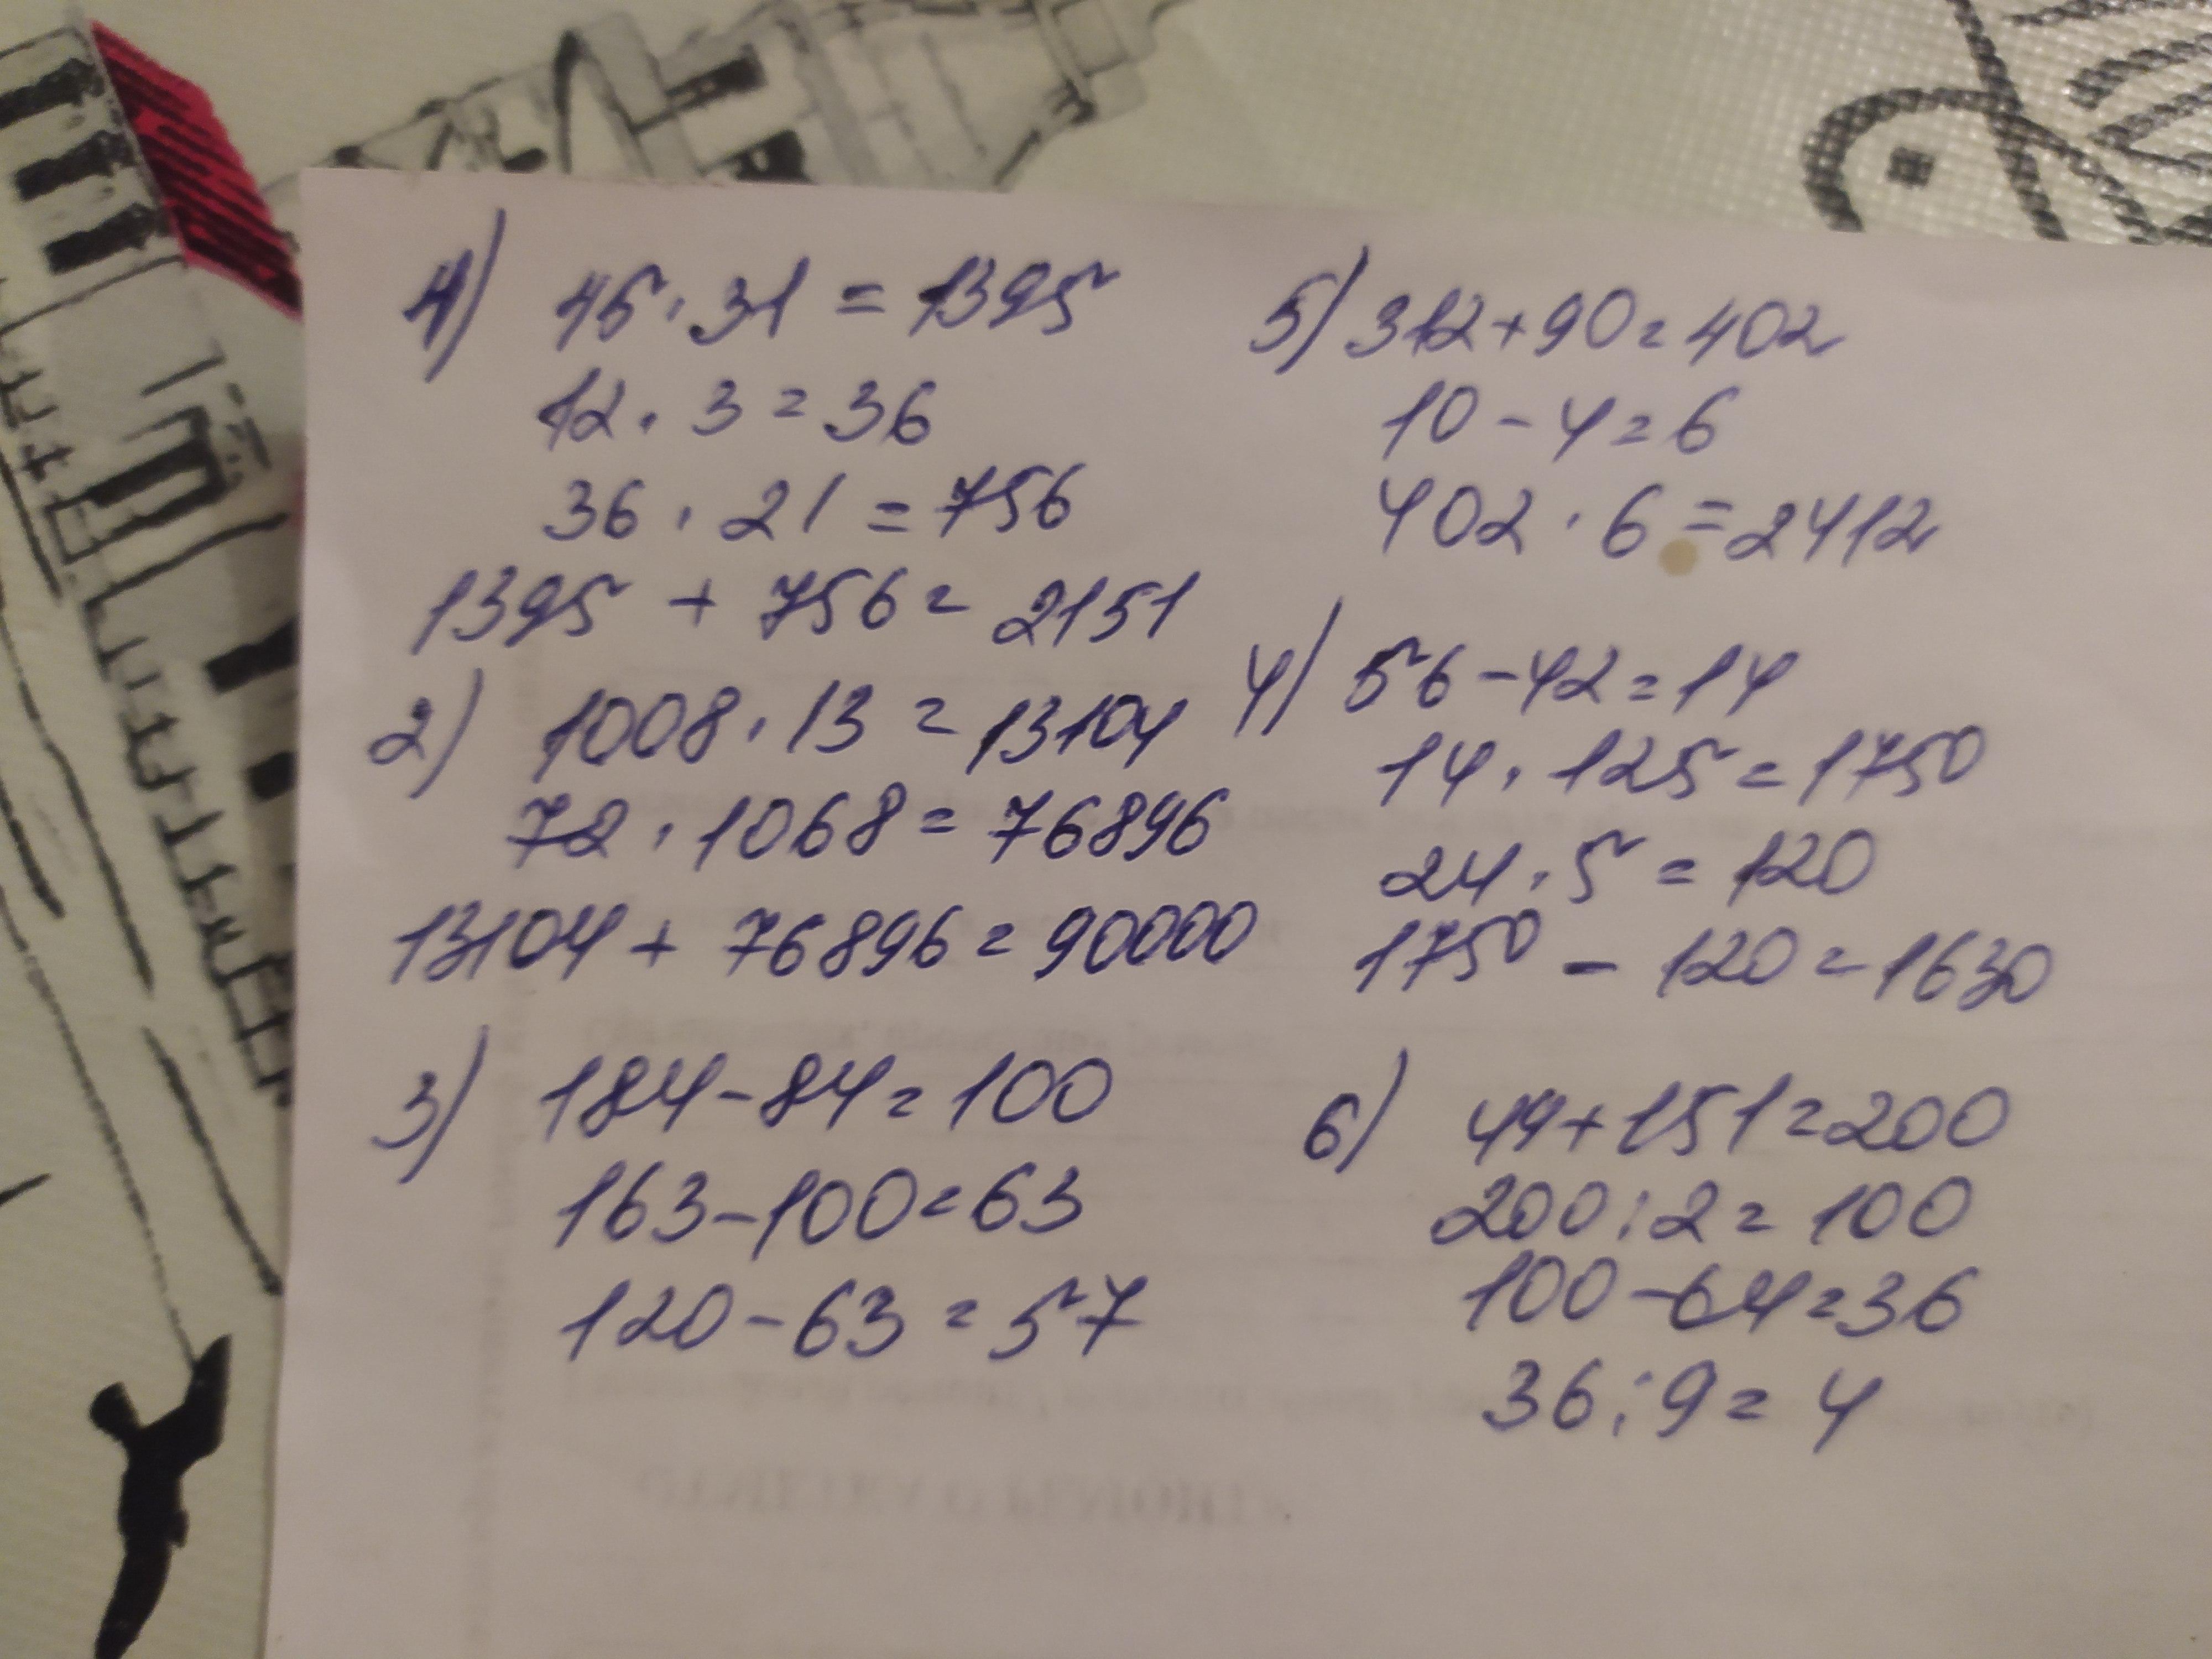 1) 45 · 31 = 1395
12 · 3 = 36
36 · 21 = 756
1395 + 756 = 2151
2) 1008 · 13 = 13104
72 · 1068 = 76896
13104 + 76896 = 90000
3) 184 - 84 = 100
163 - 100 = 63
120 - 63 = 57
5) 312 + 90 = 402
10 - 4 = 6
402 · 6 = 2412
4) 56 - 42 = 14
14 · 125 = 1750
24 · 5 = 120
1750 - 120 = 1630
6) 49 + 151 = 200
200 : 2 = 100
100 - 64 = 36
36 : 9 = 4